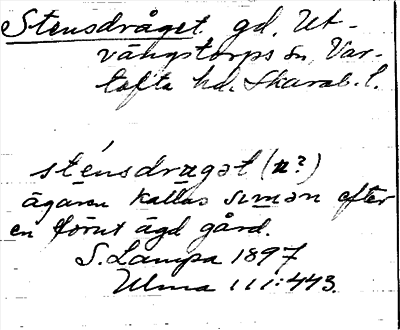 Stensdråget gd, Ut-
vängstorps sn, Var-
tofta hd. Skarab. l.
sténsdragət (a?)
ägaren kallas simən efter
en förut ägd gård.
S. Lampa 1897
Ulma 111:443.